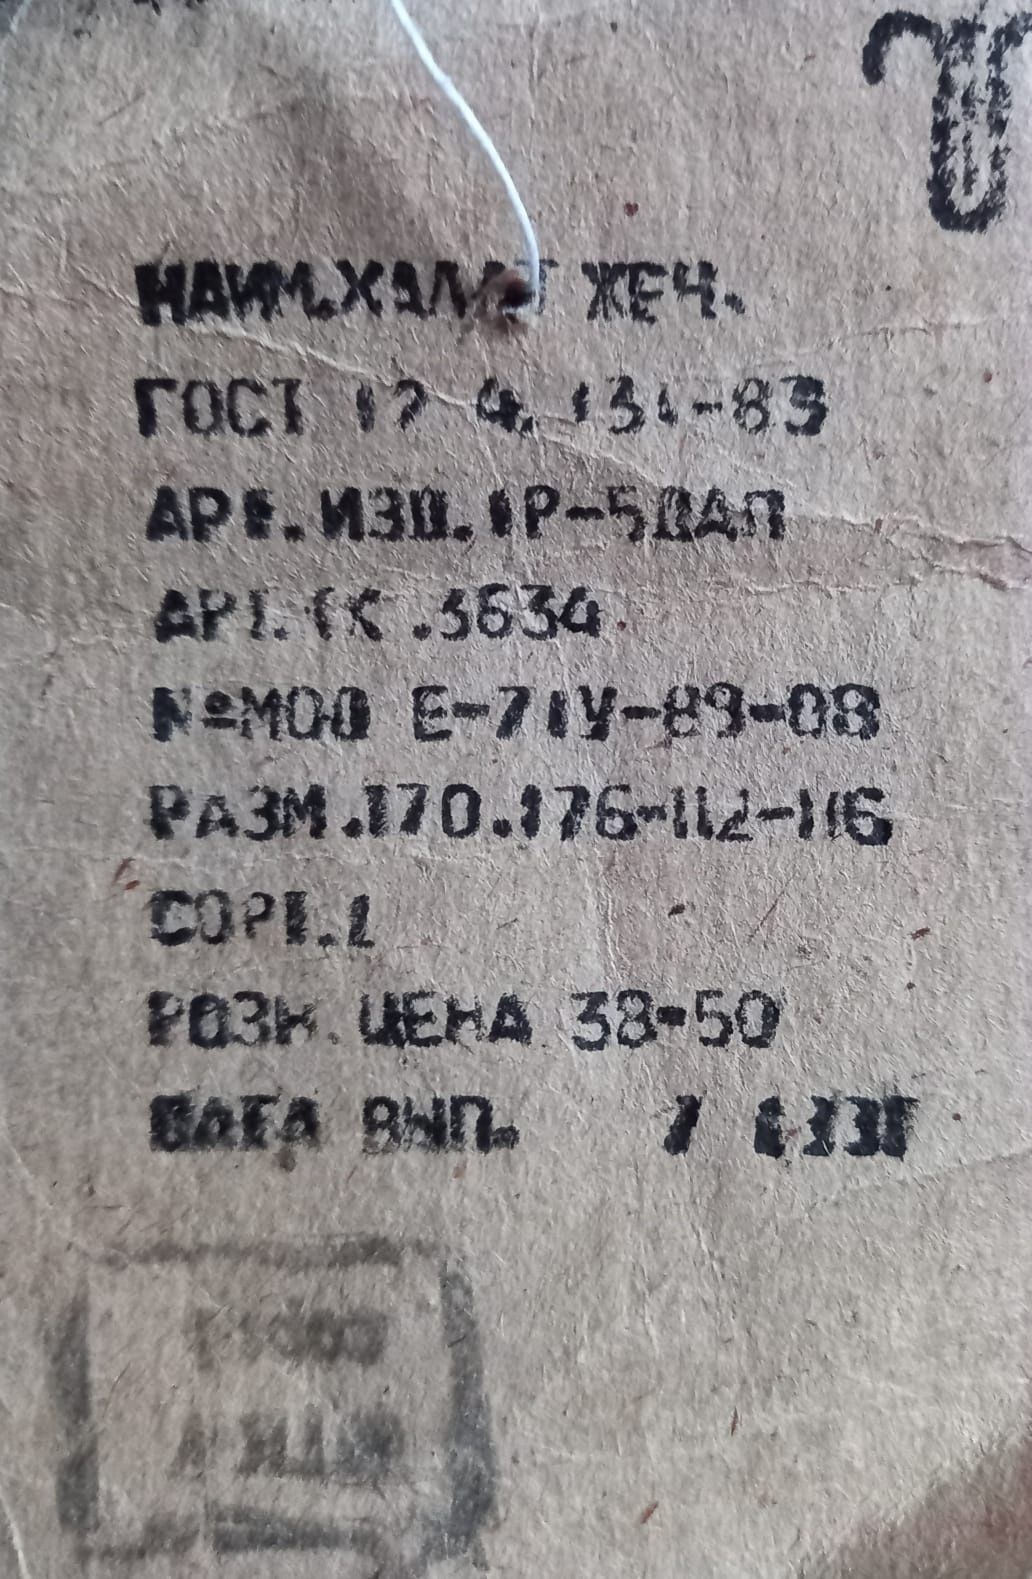 НАИМ.ХАЛАТ ЖЕЧ.
ГОСТ 12 4. 131-83
АРТ.ИЗД.1Р-5ДАП
АРТ.ТК .3634
№МОД Е-71У-89-08
РАЗМ.170.176-112-116
СОРТ.1
РОЗН. ЦЕНА 38-50
ДАТА ВЫП.